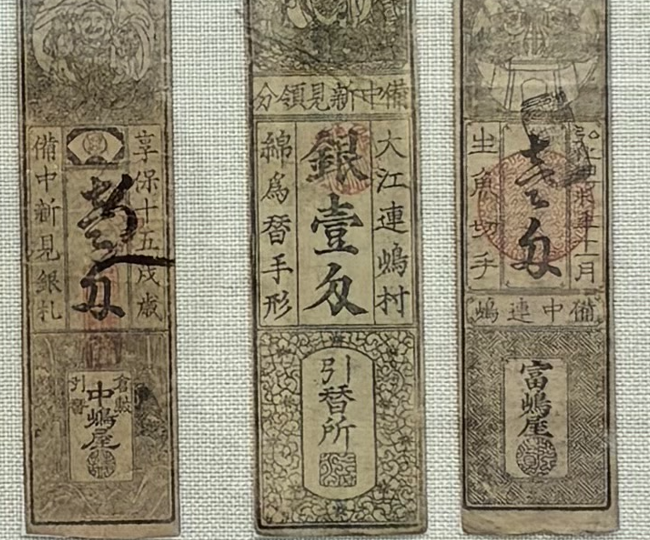 享保十五戌歳
壹匁
備中新見銀札
倉敷
中嶋屋
引替
備中新見領分
大江連嶋村
銀壹匁
綿爲替手形
引替所
十一月
壱匁
生魚切手
備中連嶋
富嶋屋